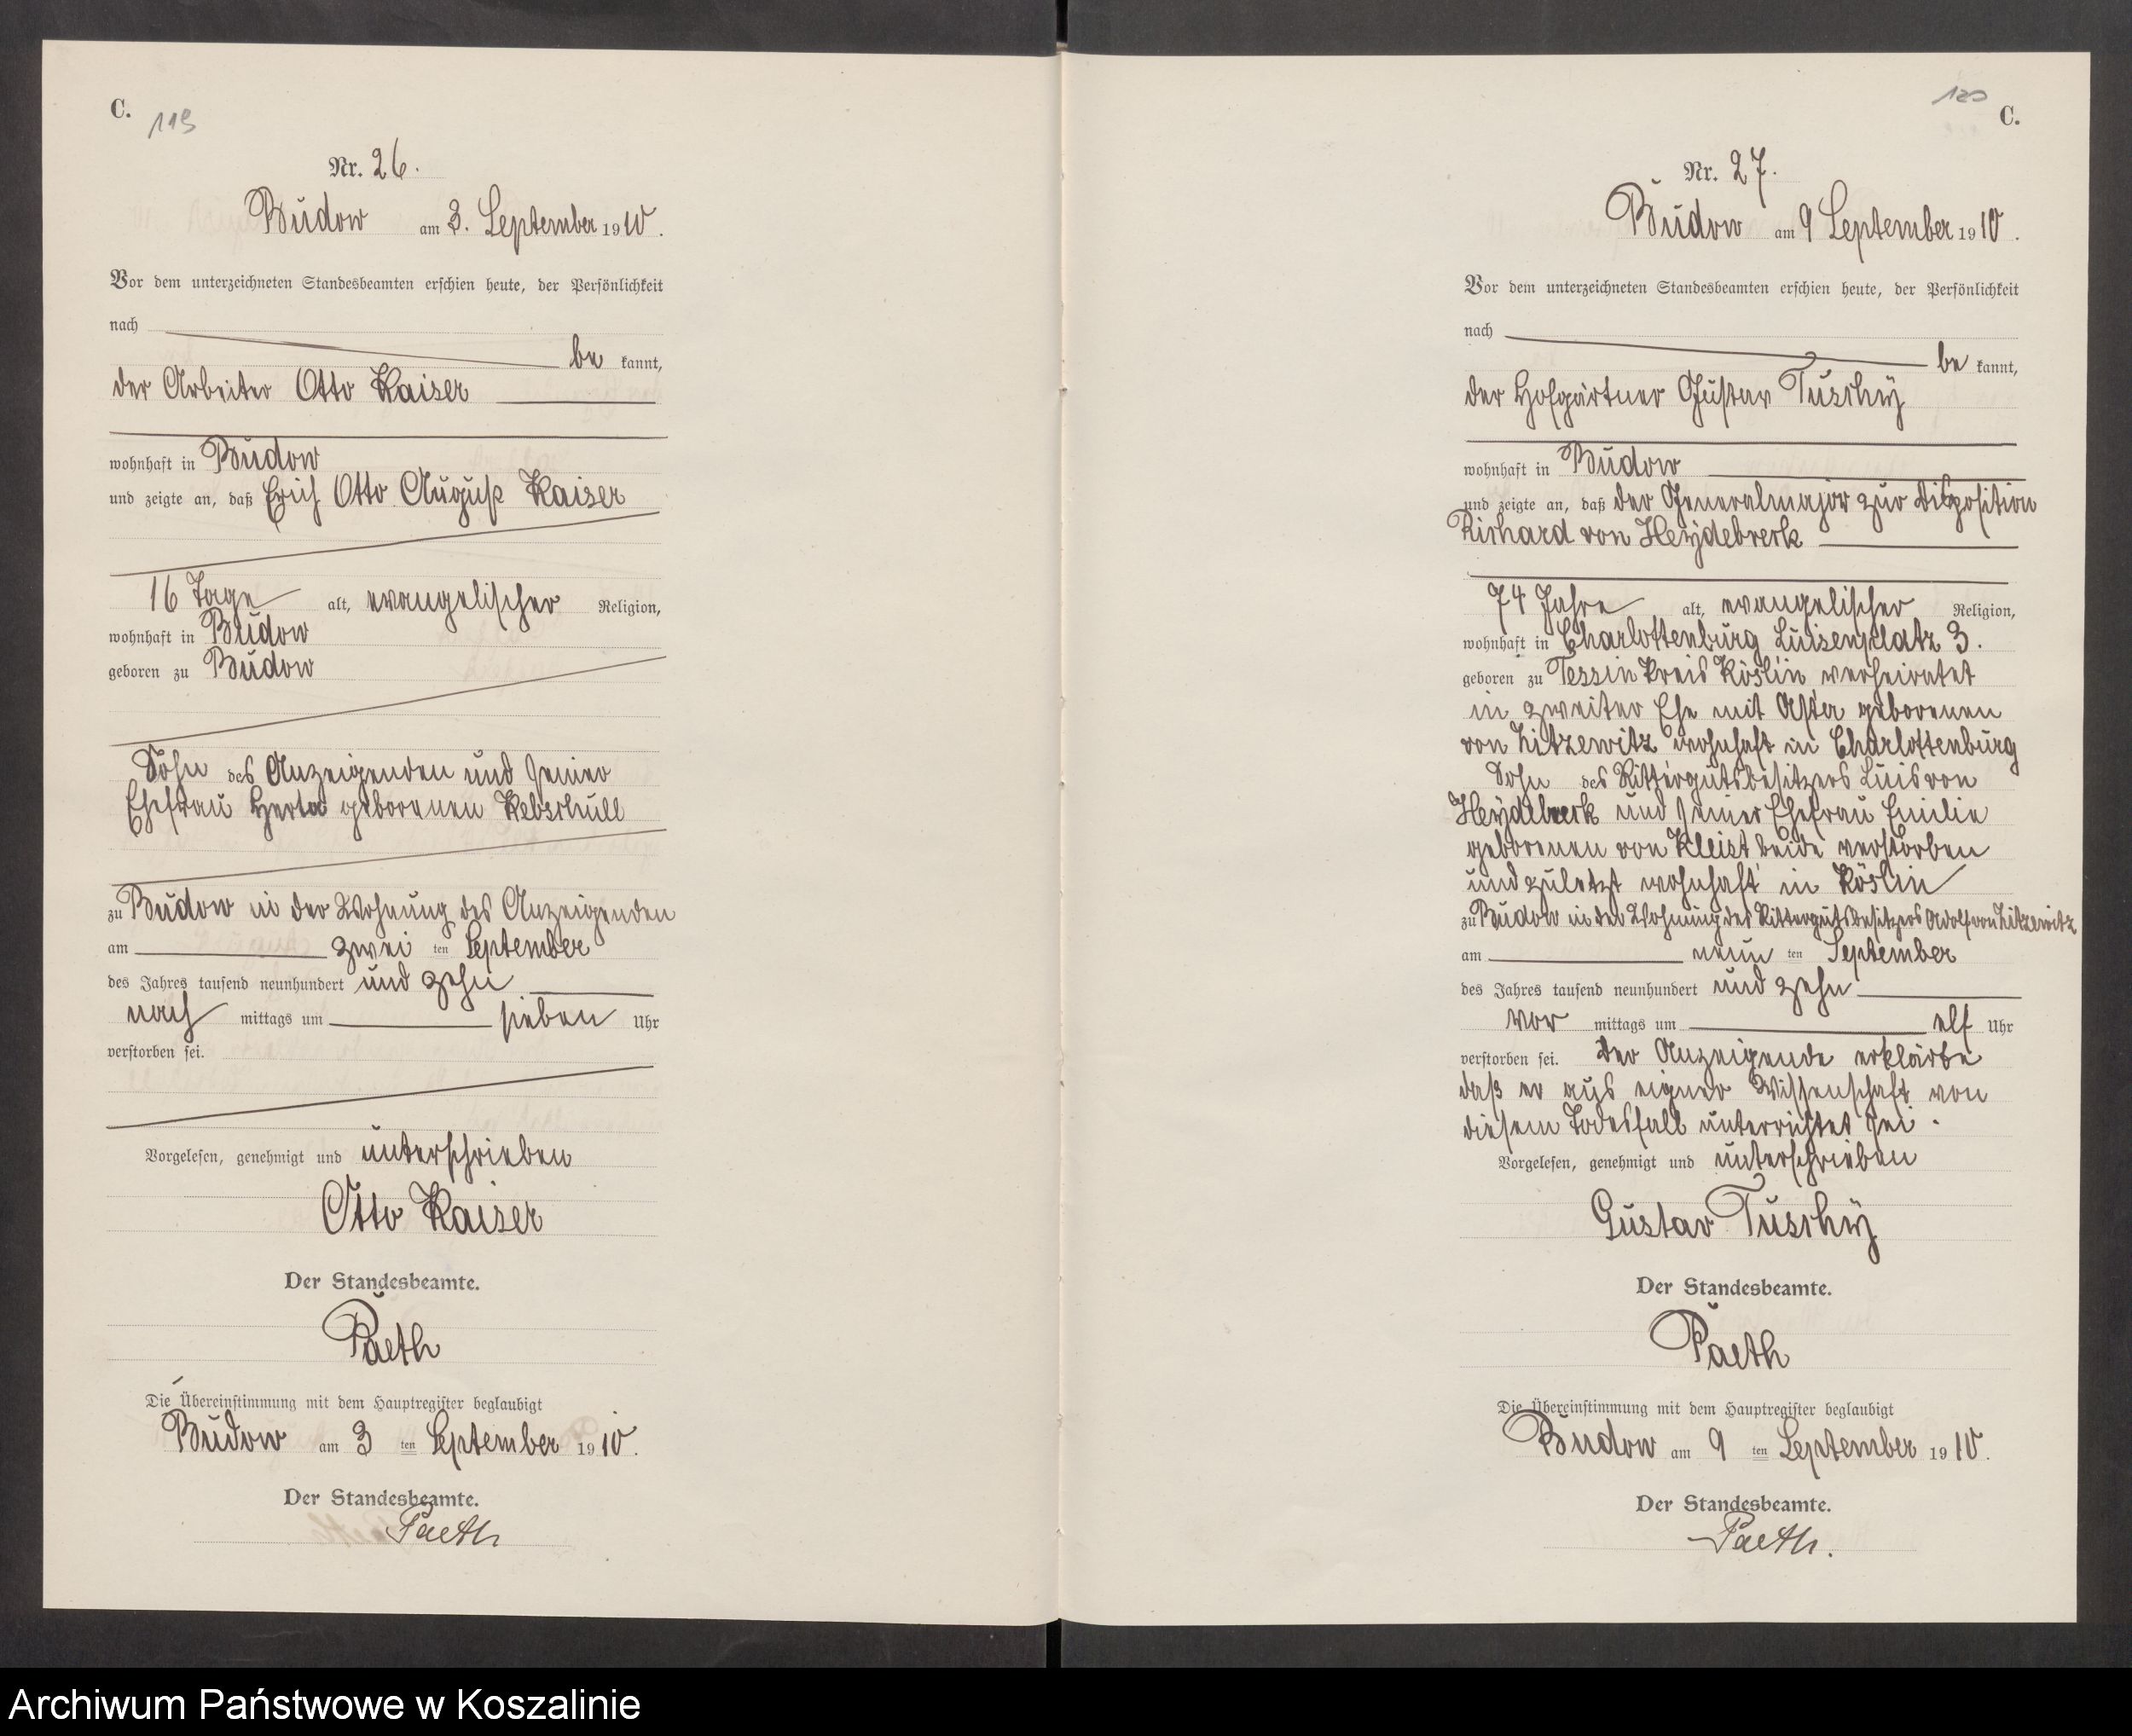 C.
119
Nr. 26.
Budow am 3. September 1910.
Vor dem unterzeichneten Standesbeamten erschien heute, der Persönlichkeit
nach
be kannt,
der Arbeiter Otto Kaiser
wohnhaft in Budow
und zeigte an, daß Erich Otto August Kaiser
16 Tage alt, evangelischer Religion,
wohnhaft in Budow
geboren zu Budow
Sohn des Anzeigenden und seiner
Ehefrau Herta geborenen Kebschull
zu Budow in der Wohnung des Anzeigenden
am zwei ten September
des Jahres tausend neunhundert und zehn
nach mittags um sieben Uhr
verstorben sei.
Vorgelesen, genehmigt und unterschrieben
Otto Kaiser
Der Standesbeamte.
Paeth
Die Übereinstimmung mit dem Hauptregister beglaubigt
Budow am 3 ten September 1910.
Der Standesbeamte.
Paeth
120
C.
Nr. 27.
Budow am 9 September 1910.
Vor dem unterzeichneten Standesbeamten erschien heute, der Persönlichkeit
nach
be kannt,
der Hofgärtner Gustav Tuschy
wohnhaft in Budow
und zeigte an, daß der Generalmajor zur Disposition
Richard von Heydebreck
74 Jahre alt, evangelischer Religion,
wohnhaft in Charlottenburg Luisenplatz 3.
geboren zu Tessin Kreis Köslin verheiratet
in zweiter Ehe mit Asta geborenen
von Zitzewitz wohnhaft in Charlottenburg
Sohn des Rittergutsbesitzers Luis von
Heydebreck und seiner Ehefrau Emilie
geborenen von Kleist beide verstorben
und zuletzt wohnhaft in Köslin
zu Budow in der Wohnung des Rittergutsbesitzers Adolf von Zitzewitz
am neun ten September
des Jahres tausend neunhundert und zehn
vor mittags um elf Uhr
verstorben sei. Der Anzeigende erklärte
daß er aus eigner Wissenschaft von
diesem Todesfall unterrichtet sei.
Vorgelesen, genehmigt und unterschrieben
Gustav Tuschy
Der Standesbeamte.
Paeth
Die Übereinstimmung mit dem Hauptregister beglaubigt
Budow am 9 ten September 1910.
Der Standesbeamte.
Paeth.
Archiwum Państwowe w Koszalinie